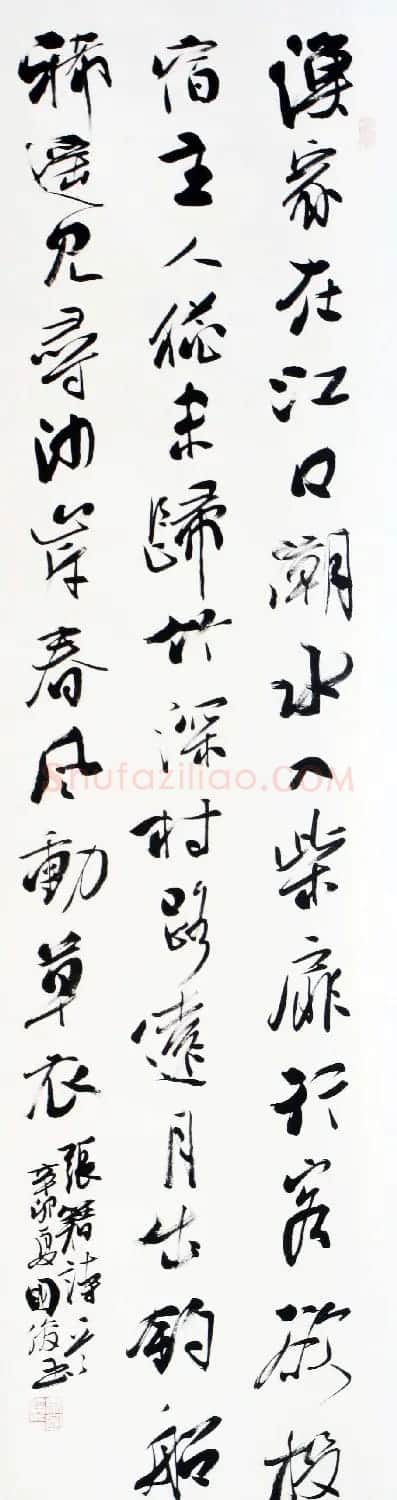 漁家在江口潮水入柴扉行客欲投
宿主人猶未歸竹深村路遠月出釣船
稀遥見尋沙岸春風動草衣
張籍詩一首
辛卯夏國俊書
Shufaziliao.COM